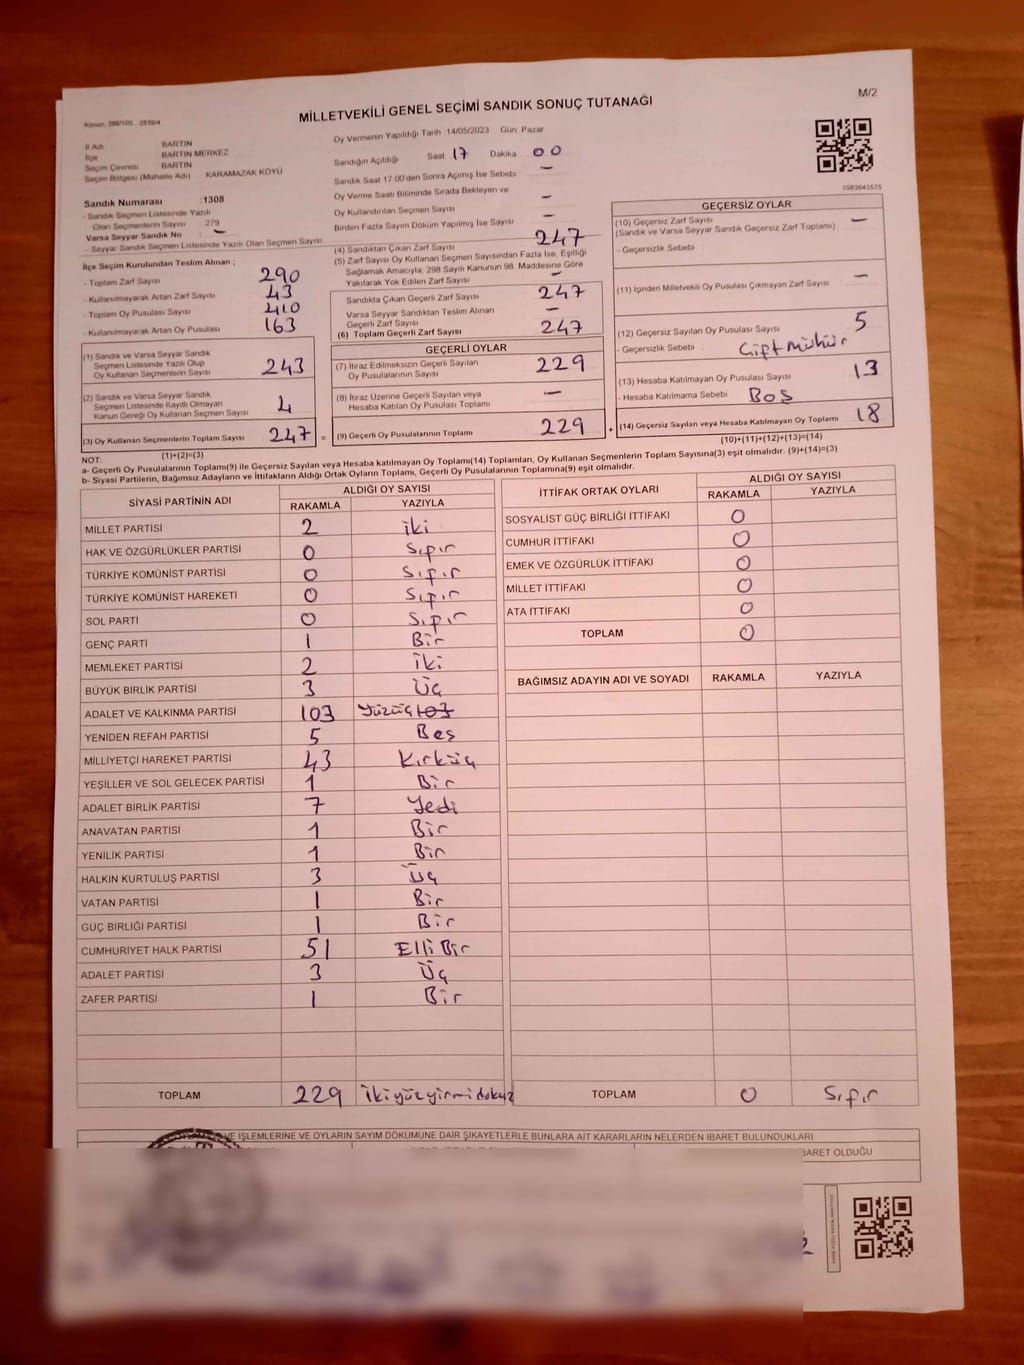 M/2
MİLLETVEKİLİ GENEL SEÇİMİ SANDIK SONUÇ TUTANAĞI
İl Adı BARTIN
İlçe BARTIN MERKEZ
Seçim Çevresi BARTIN
Seçim Bölgesi (Mahalle Adı) KARAMAZAK KÖYÜ
Oy Vermenin Yapıldığı Tarih 14/05/2023 Gün: Pazar
Sandığın Açıldığı Saat 17 Dakika 00
Sandık Saat 17:00'den Sonra Açımış İse Sebebi : —
Oy Verme Saati Bitiminde Sırada Bekleyen ve
Oy Kullandırılan Seçmen Sayısı —
Birden Fazla Sayım Döküm Yapılmış İse Sayısı —
1083643575
Sandık Numarası : 1308
- Sandık Seçmen Listesinde Yazılı
Olan Seçmenlerin Sayısı 279
Varsa Seyyar Sandık No : —
- Seyyar Sandık Seçmen Listesinde Yazılı Olan Seçmen Sayısı
İlçe Seçim Kurulundan Teslim Alınan ;
- Toplam Zarf Sayısı 290
- Kullanılmayarak Artan Zarf Sayısı 43
- Toplam Oy Pusulası Sayısı 410
- Kullanılmayarak Artan Oy Pusulası 163
(1) Sandık ve Varsa Seyyar Sandık
Seçmen Listesinde Yazılı Olup
Oy Kullanan Seçmenlerin Sayısı 243
(2) Sandık ve Varsa Seyyar Sandık
Seçmen Listesinde Kayıtlı Olmayan
Kanun Gereği Oy Kullanan Seçmen Sayısı 4
(3) Oy Kullanan Seçmenlerin Toplam Sayısı 247 =
(1)+(2)=(3)
(4) Sandıktan Çıkan Zarf Sayısı 247
(5) Zarf Sayısı Oy Kullanan Seçmen Sayısından Fazla İse, Eşitliği
Sağlamak Amacıyla, 298 Sayılı Kanunun 98. Maddesine Göre
Yakılarak Yok Edilen Zarf Sayısı —
Sandıkta Çıkan Geçerli Zarf Sayısı 247
Varsa Seyyar Sandıktan Teslim Alınan
Geçerli Zarf Sayısı —
(6) Toplam Geçerli Zarf Sayısı 247
GEÇERLİ OYLAR
(7) İtiraz Edilmeksizin Geçerli Sayılan
Oy Pusulalarının Sayısı 229
(8) İtiraz Üzerine Geçerli Sayılan veya
Hesaba Katılan Oy Pusulası Toplamı —
(9) Geçerli Oy Pusulalarının Toplamı 229 +
GEÇERSİZ OYLAR
(10) Geçersiz Zarf Sayısı —
(Sandık ve Varsa Seyyar Sandık Geçersiz Zarf Toplamı)
- Geçersizlik Sebebi :
(11) İçinden Milletvekili Oy Pusulası Çıkmayan Zarf Sayısı —
(12) Geçersiz Sayılan Oy Pusulası Sayısı 5
- Geçersizlik Sebebi : Çift Mühür
(13) Hesaba Katılmayan Oy Pusulası Sayısı 13
- Hesaba Katılmama Sebebi : Boş
(14) Geçersiz Sayılan veya Hesaba Katılmayan Oy Toplamı 18
(10)+(11)+(12)+(13)=(14)
NOT:
a- Geçerli Oy Pusulalarının Toplamı(9) ile Geçersiz Sayılan veya Hesaba katılmayan Oy Toplamı(14) Toplamları, Oy Kullanan Seçmenlerin Toplam Sayısına(3) eşit olmalıdır. (9)+(14)=(3)
b- Siyasi Partilerin, Bağımsız Adayların ve İttifakların Aldığı Ortak Oyların Toplamı, Geçerli Oy Pusulalarının Toplamına(9) eşit olmalıdır.
SİYASİ PARTİNİN ADI ALDIĞI OY SAYISI
RAKAMLA YAZIYLA
MİLLET PARTİSİ 2 iki
HAK VE ÖZGÜRLÜKLER PARTİSİ 0 Sıfır
TÜRKİYE KOMÜNİST PARTİSİ 0 Sıfır
TÜRKİYE KOMÜNİST HAREKETİ 0 Sıfır
SOL PARTİ 0 Sıfır
GENÇ PARTİ 1 Bir
MEMLEKET PARTİSİ 2 iki
BÜYÜK BİRLİK PARTİSİ 3 Üç
ADALET VE KALKINMA PARTİSİ 103 Yüzüç 103
YENİDEN REFAH PARTİSİ 5 Beş
MİLLİYETÇİ HAREKET PARTİSİ 43 Kırküç
YEŞİLLER VE SOL GELECEK PARTİSİ 1 Bir
ADALET BİRLİK PARTİSİ 7 Yedi
ANAVATAN PARTİSİ 1 Bir
YENİLİK PARTİSİ 1 Bir
HALKIN KURTULUŞ PARTİSİ 3 Üç
VATAN PARTİSİ 1 Bir
GÜÇ BİRLİĞİ PARTİSİ 1 Bir
CUMHURİYET HALK PARTİSİ 51 Elli Bir
ADALET PARTİSİ 3 Üç
ZAFER PARTİSİ 1 Bir
TOPLAM 229 ikiyüzyirmidokuz
İTTİFAK ORTAK OYLARI ALDIĞI OY SAYISI
RAKAMLA YAZIYLA
SOSYALİST GÜÇ BİRLİĞİ İTTİFAKI 0
CUMHUR İTTİFAKI 0
EMEK VE ÖZGÜRLÜK İTTİFAKI 0
MİLLET İTTİFAKI 0
ATA İTTİFAKI 0
TOPLAM 0
BAĞIMSIZ ADAYIN ADI VE SOYADI RAKAMLA YAZIYLA
TOPLAM 0 Sıfır
VE İŞLEMLERİNE VE OYLARIN SAYIM DÖKÜMÜNE DAİR ŞİKAYETLERLE BUNLARA AİT KARARLARIN NELERDEN İBARET BULUNDUKLARI
BARET OLDUĞU